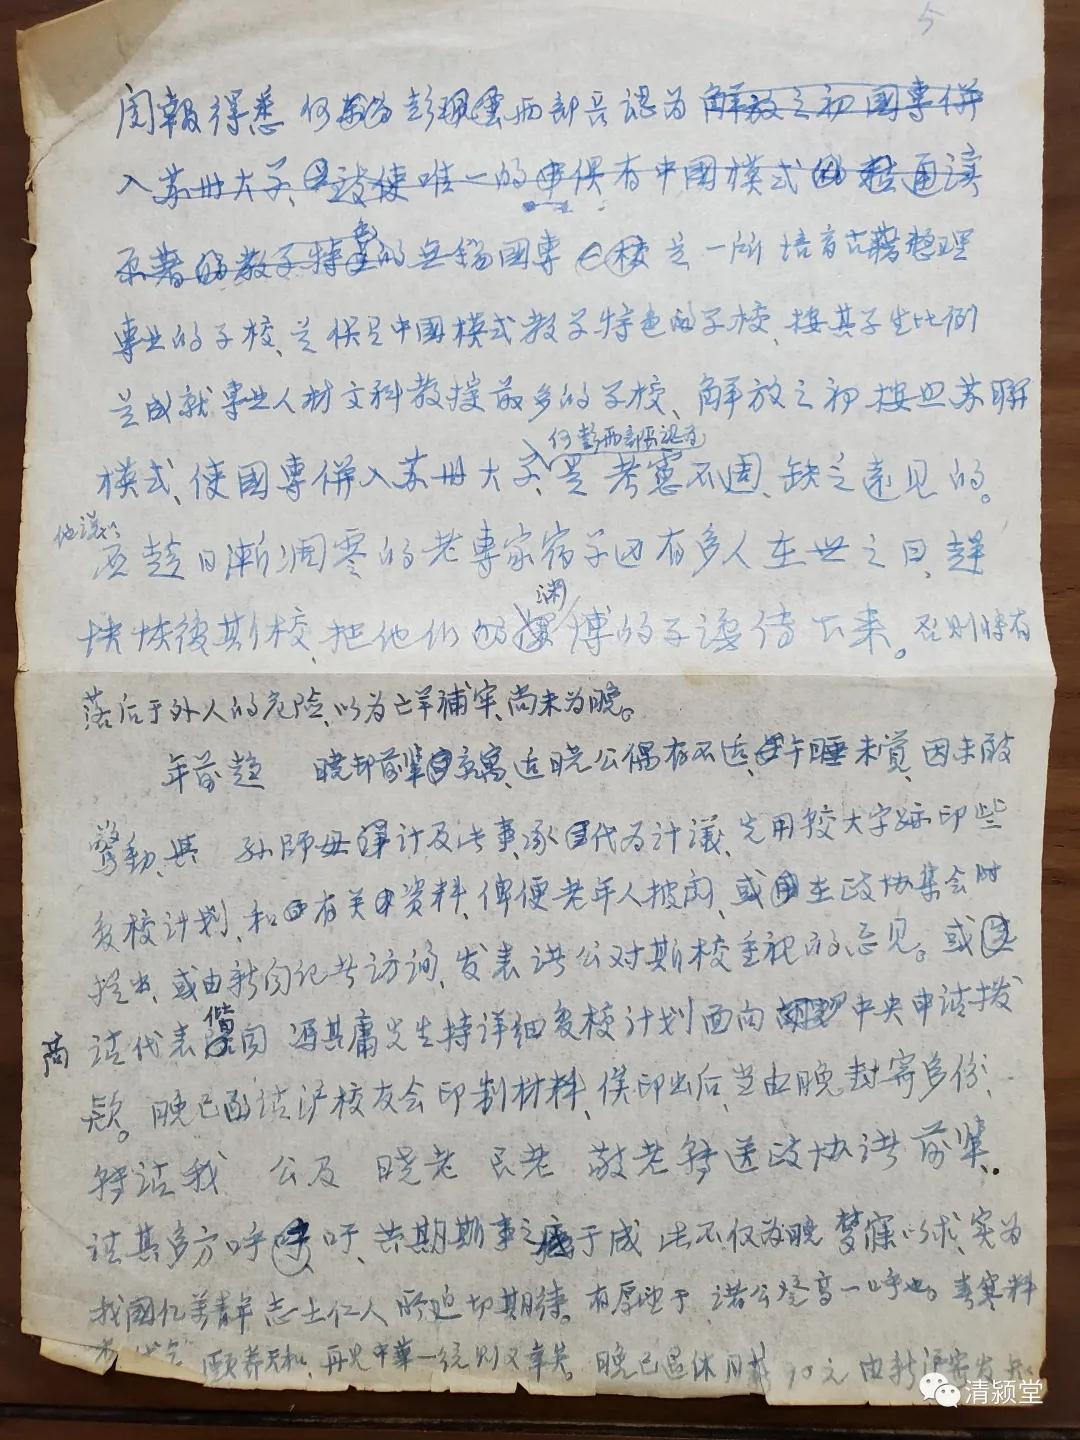 5
阅報得悉 何東昌彭珮雲两部長認为解放之初國專併
入苏州大学、致使唯一的俱有中國模式的通读
原著的教学特色的无锡國專 校是一所培育古籍整理
專业的学校、是俱足中國模式教学特色的学校、按其学生比例
是成就專业人材文科教授最多的学校、解放之初按照苏聯
何彭两部長認为
模式、使國專併入苏州大学、是考慮不週、缺乏遠见的。
他议以
要趁日漸凋零的老專家宿学因有多人在世之日、趕
快恢復斯校、把他们的渊博的学識传下来。否则將有
落后于外人的危险、以为亡羊補牢、尚未为晚。
年前趋 晓邨前辈京寓、适晓公偶有不适、午睡未覺、因未敢
驚動、与 孙師母详计及此事、承代为计議、先用较大字跡印些
复校计划、和有关资料、俾便老年人披阅、或在政协集会时
提出、或由新闻记者访询、发表诸公对斯校重视的意见。或
请代表偕同 馮其庸先生持详细复校计划面向中央申请拨
款。晚已函请沪校友会印制材料、俟印出后、当由晚封寄多份、
转请我 公及 晓老 民老 敬老转送政协诸前辈、
请其多方呼吁、共期斯事之底于成 此不仅为晚梦寐以求、实为
我國亿万青年志士仁人所迫切期待。有厚望于 諸公登高一呼也。春寒料
頤养天和、再見中華一统则又幸矣。晚已退休月薪90元 由新沪寄发
清颖堂